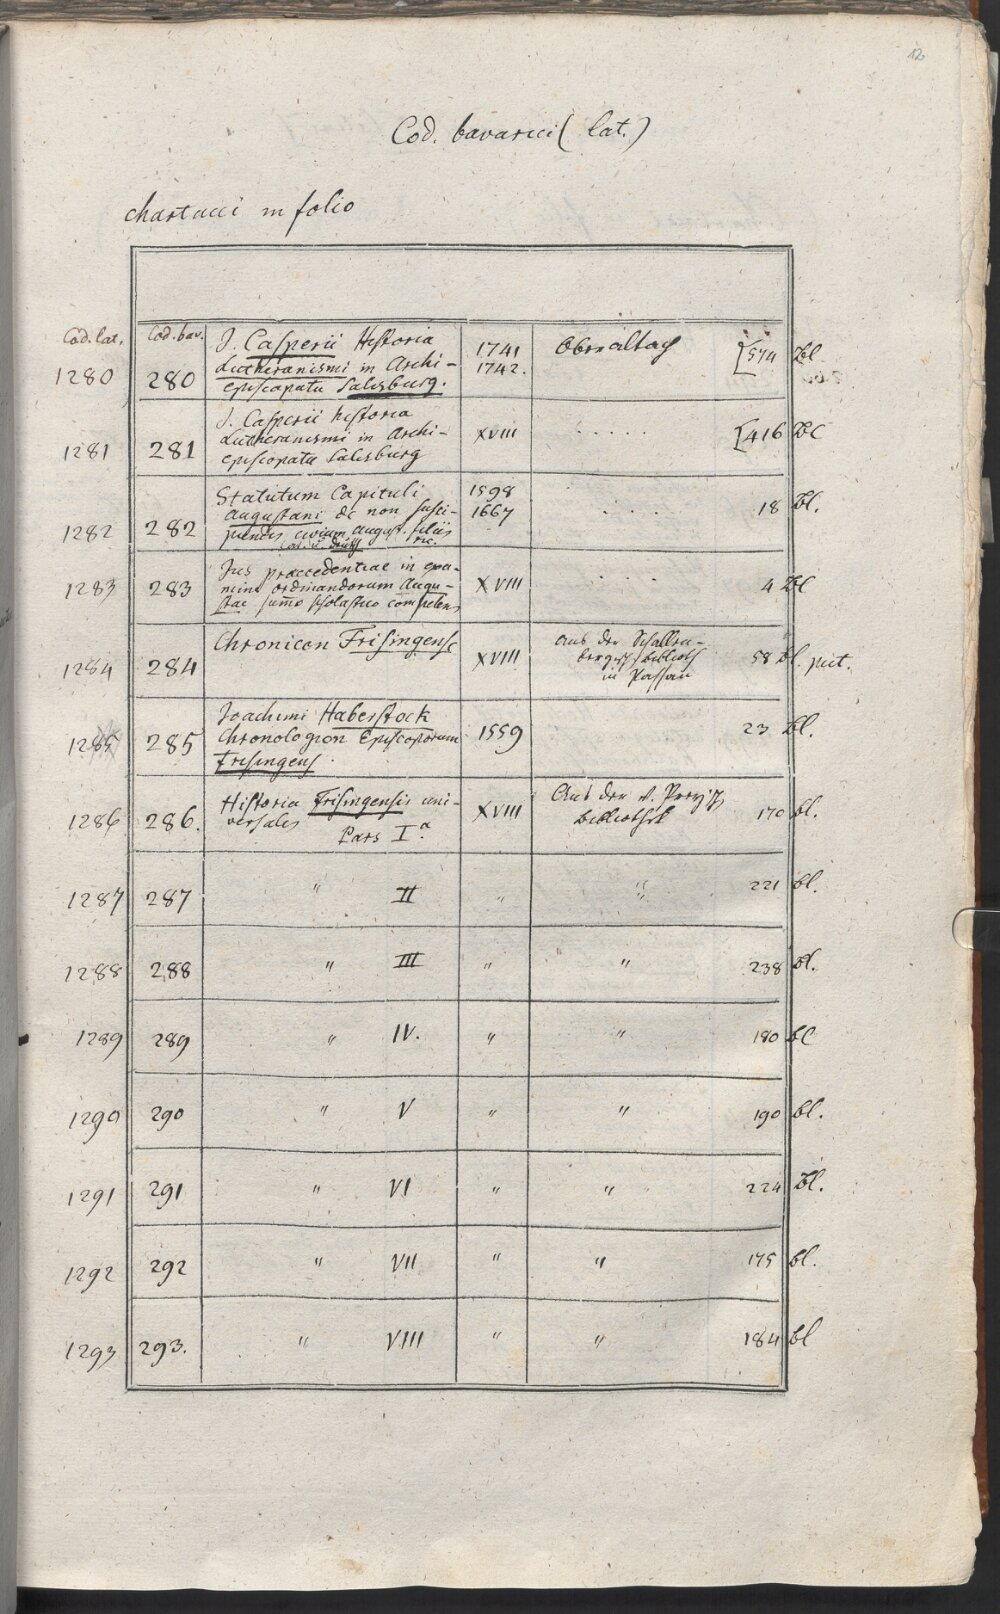 12
Cod. bavarici (lat.)
chartacei in folio
Cod. lat. Cod. bav.
1280 280 J. Casperii Historia
Lutheranismi in Archi-
episcopatu Salisburg. 1741
1742. Oberaltach [574 Bl.
1281 281 J. Casperii historia
Lutheranismi in Archi-
episcopatu Salisburg XVIII . . . . . [416 Bl
1282 282 Statutum Capituli
Augustani de non susci-
piendis civium august. filiis
etc. 1598
1667 . . . . 18 Bl.
1283 283 Jus praecedentiae in exa-
mine ordinandorum Augu-
stae summo scholastico competens XVIII . . . . 4 Bl
1284 284 Chronicon Frisingense XVIII Aus der Schallen-
bergisch Biblioth
in Passau 58 Bl. pict.
1285 285 Joachimi Haberstock
Chronologion Episcoporum
Frisingens. 1559 23 Bl.
1286 286. Historia Frisingensis uni-
versales
Pars I.a XVIII Aus der
Bibliothek 170 bl.
1287 287 " II " " 221 bl.
1288 288 " III " " 238 bl.
1289 289 " IV. " " 180 bl
1290 290 " V " " 190 bl.
1291 291 " VI " " 224 bl.
1292 292 " VII " " 175 bl.
1293 293. " VIII " " 184 bl